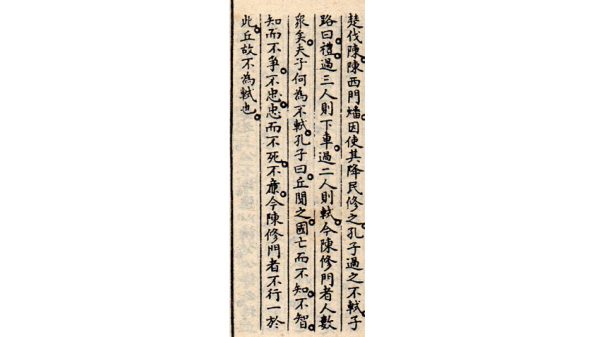 楚伐陳。陳西門燔。因使其降民修之。孔子過之不軾。子
路曰。禮。過三人則下車。過二人則軾。今陳修門者人數
衆矣。夫子何為不軾。孔子曰。丘聞之。國亡而不知。不智。
知而不爭。不忠。忠而不死。不廉。今陳修門者不行一於
此。丘故不為軾也。